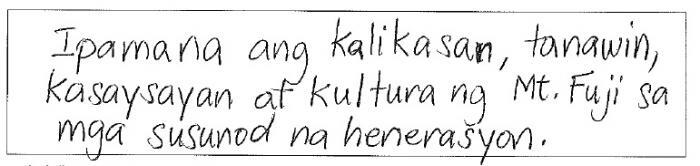 Ipamana ang kalikasan, tanawin,
kasaysayan at kultura ng Mt. Fuji sa
mga susunod na henerasyon.